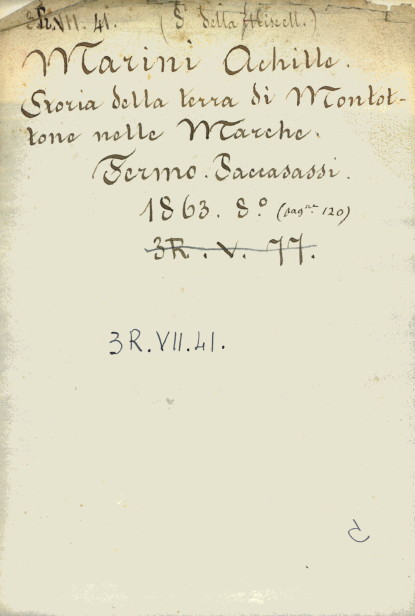 3R.VII.41. (8° della Miscell.)
Marini Achille.
Storia della terra di Montot-
tone nelle Marche.
Fermo. Paccasassi.
1863. 8.° (pagne 120)
3R. V. 77.
3R.VII.41.